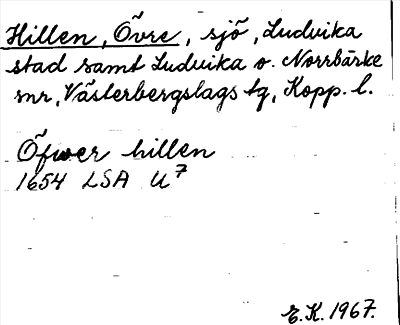 Hillen, Övre, sjö, Ludvika
stad samt Ludvika o. Norrbärke
snr, Västerbergslags tg, Kopp. l.
Öfwer hillen
1654 LSA U7
E.K. 1967.